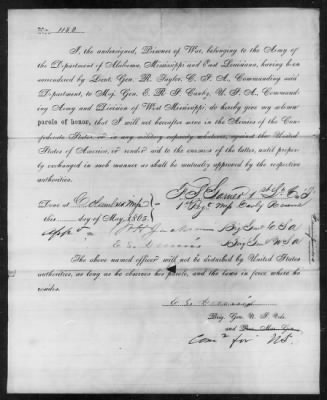 No. 1180
I, the undersigned, Prisoner of War, belonging to the Army of
the Department of Alabama, Mississippi and East Louisiana, having been
surrendered by Lieut. Gen. R. Taylor, C. S. A., Commanding said
Department, to Maj. Gen. E. R. S. Canby, U. S. A., Command-
ing Army and Division of West Mississippi, do hereby give my solemn
parole of honor, that I will not hereafter serve in the Armies of the Con-
federate States, or in any military capacity whatever, against the United
States of America, or render aid to the enemies of the latter, until proper-
ly exchanged in such manner as shall be mutually approved by the respective
authorities.
1st
Done at Columbus Miss
this day of May, 1865.
Brig Genl C S A
E S Dennis Brig Genl U S A
The above named officer will not be disturbed by United States
authorities, as long as he observes his parole, and the laws in force where he
resides.
E S Dennis
Brig. Gen. U. S. Vols.
and
Com for U S.